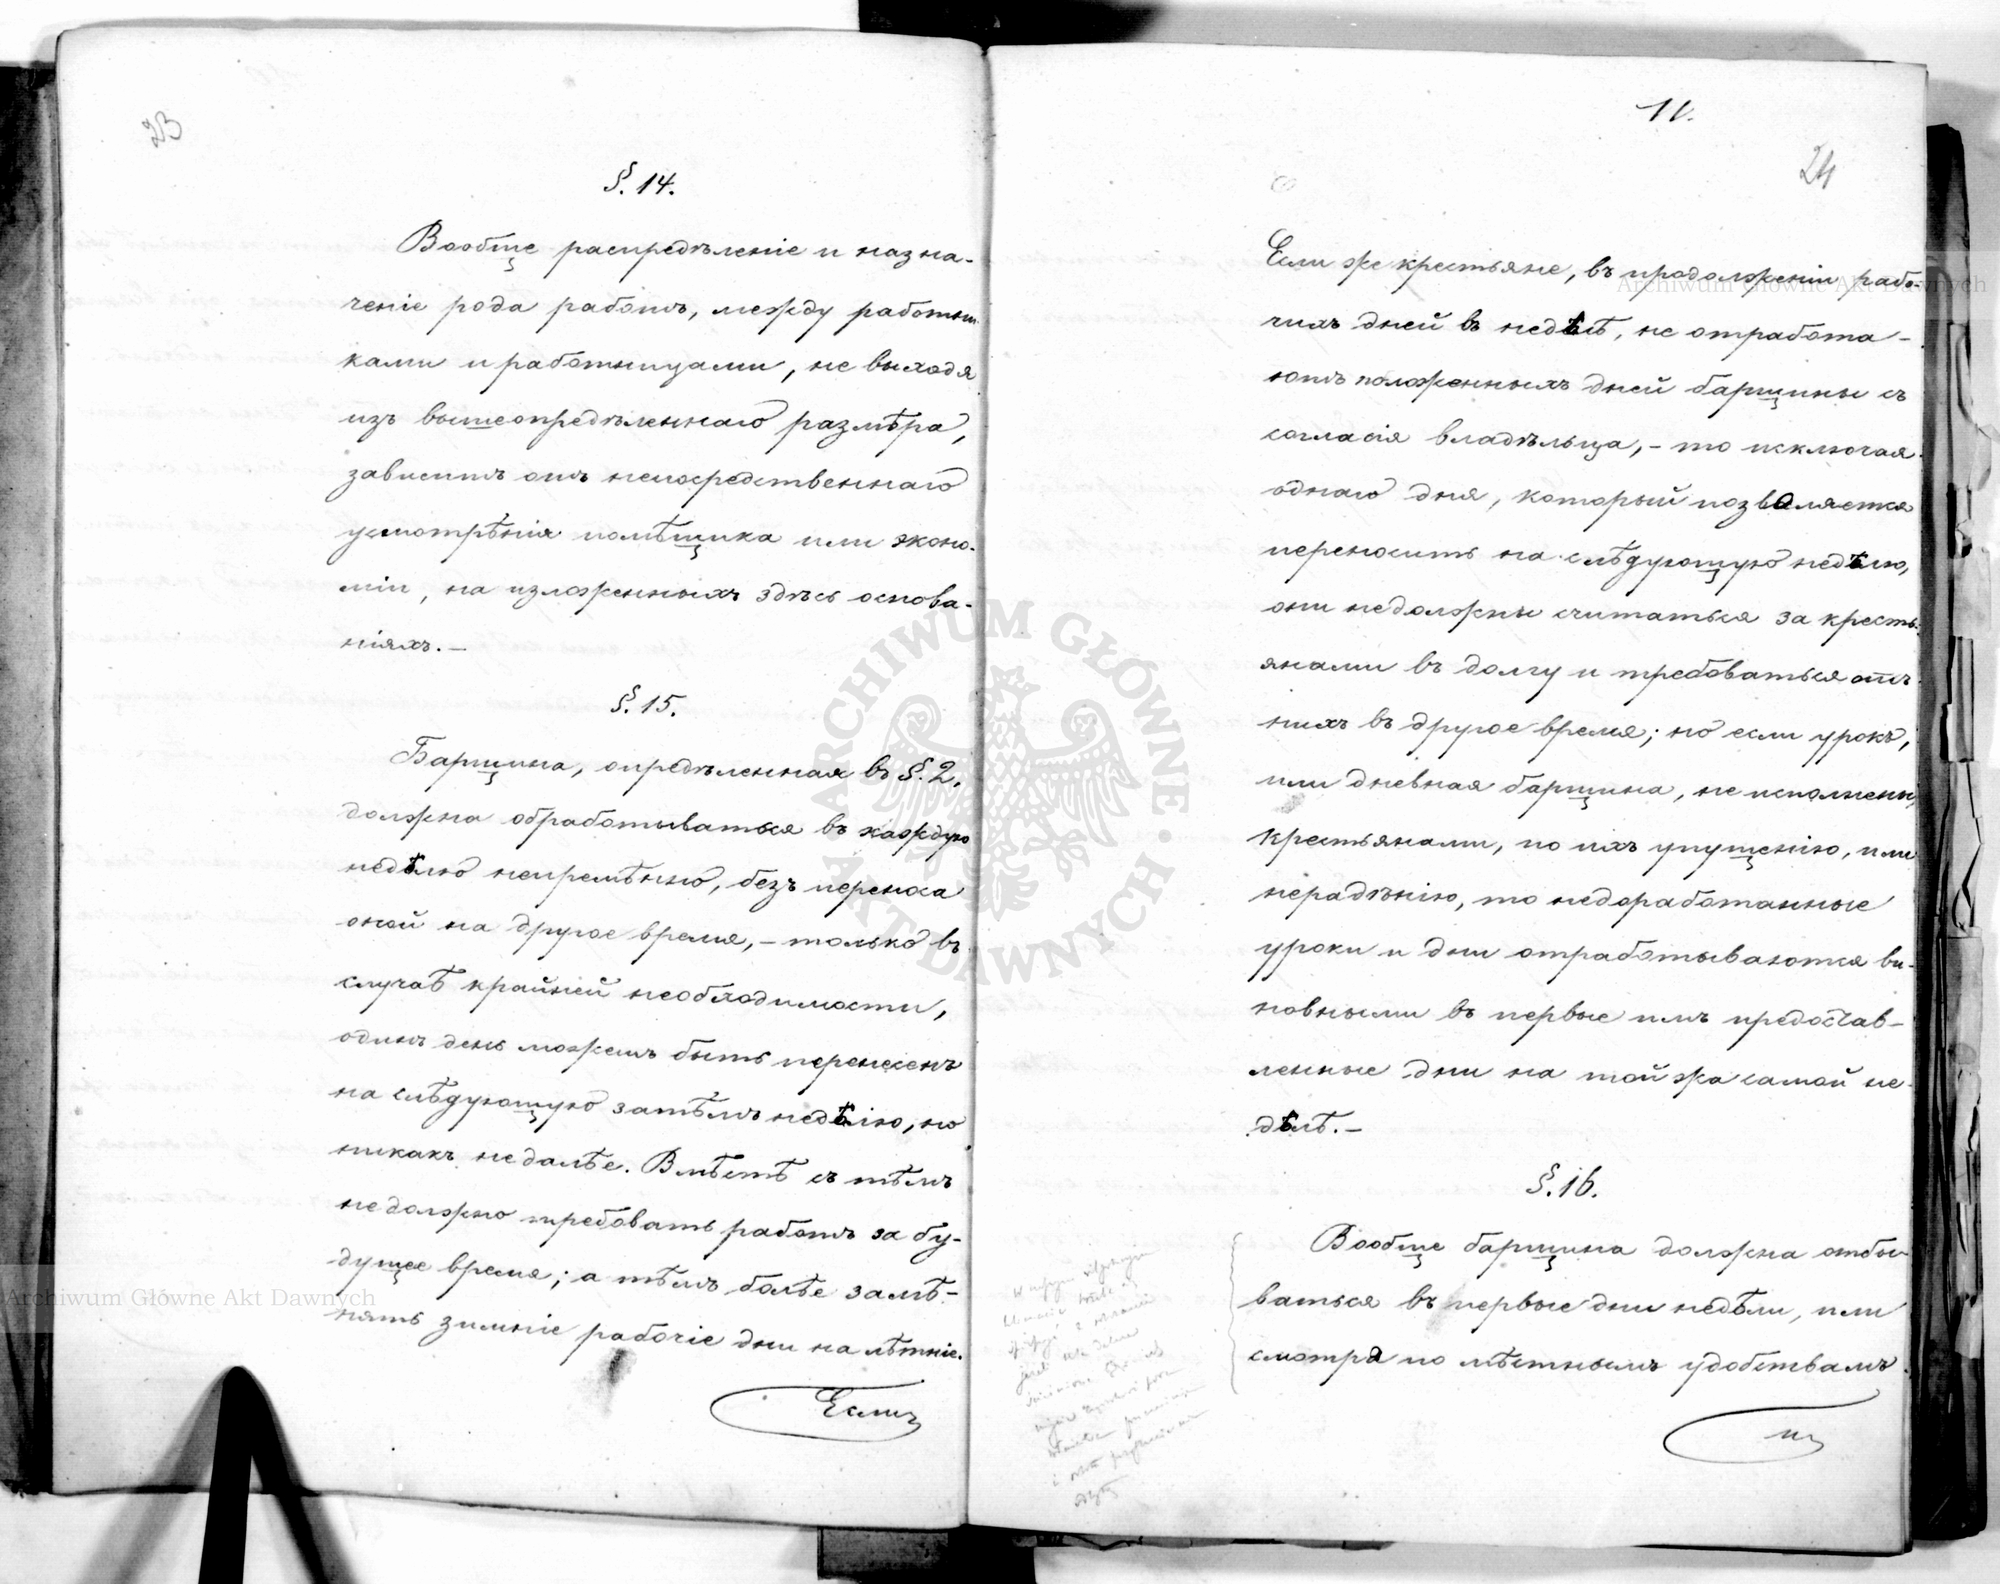 23
§. 14.
Вообще распредѣленіе и назна-
ченіе рода работъ, между работни-
ками и работницами, не выходя
изъ вышеопредѣленнаго размѣра,
зависитъ отъ непосредственнаго
усмотрѣнія помѣщика или эконо-
міи, на изложенныхъ здѣсь основа-
ніяхъ.—
§. 15.
Барщина, опредѣленная въ §. 2.
должна обработываться въ каждую
недѣлю непремѣнно, безъ переноса
оной на другое время,— только въ
случаѣ крайней необходимости,
одинъ день можетъ быть перенесенъ
на слѣдующую затѣмъ недѣлю, но
никакъ не далѣе. Вмѣстѣ съ тѣмъ
не должно требовать работъ за бу-
дущее время; а тѣмъ болѣе замѣ-
нять зимніе рабочіе дни на лѣтніе.
Если
11.
24
Если же крестьяне, въ продолженіи рабо-
чихъ дней въ недѣлѣ, не отработа-
ютъ положенныхъ дней барщины съ
согласія владѣльца,— то исключая
однаго дня, который позволяется
переносить на слѣдующую недѣлю,
они не должны считаться за кресть-
янами въ долгу и требоваться отъ
нихъ въ другое время; но если урокъ,
или дневная барщина, не исполнены
крестьянами, по ихъ упущенію, или
нерадѣнію, то недоработанные
уроки и дни отработываются ви-
новными въ первые имъ предостав-
ленные дни на той жа самой не-
дѣлѣ.—
§. 16.
Вообще барщина должна отбы-
ваться въ первые дни недѣли, или
смотря по мѣстнымъ удобствамъ
и
ARCHIWUM GŁÓWNE AKT DAWNYCH
Archiwum Główne Akt Dawnych
Archiwum Główne Akt Dawnych